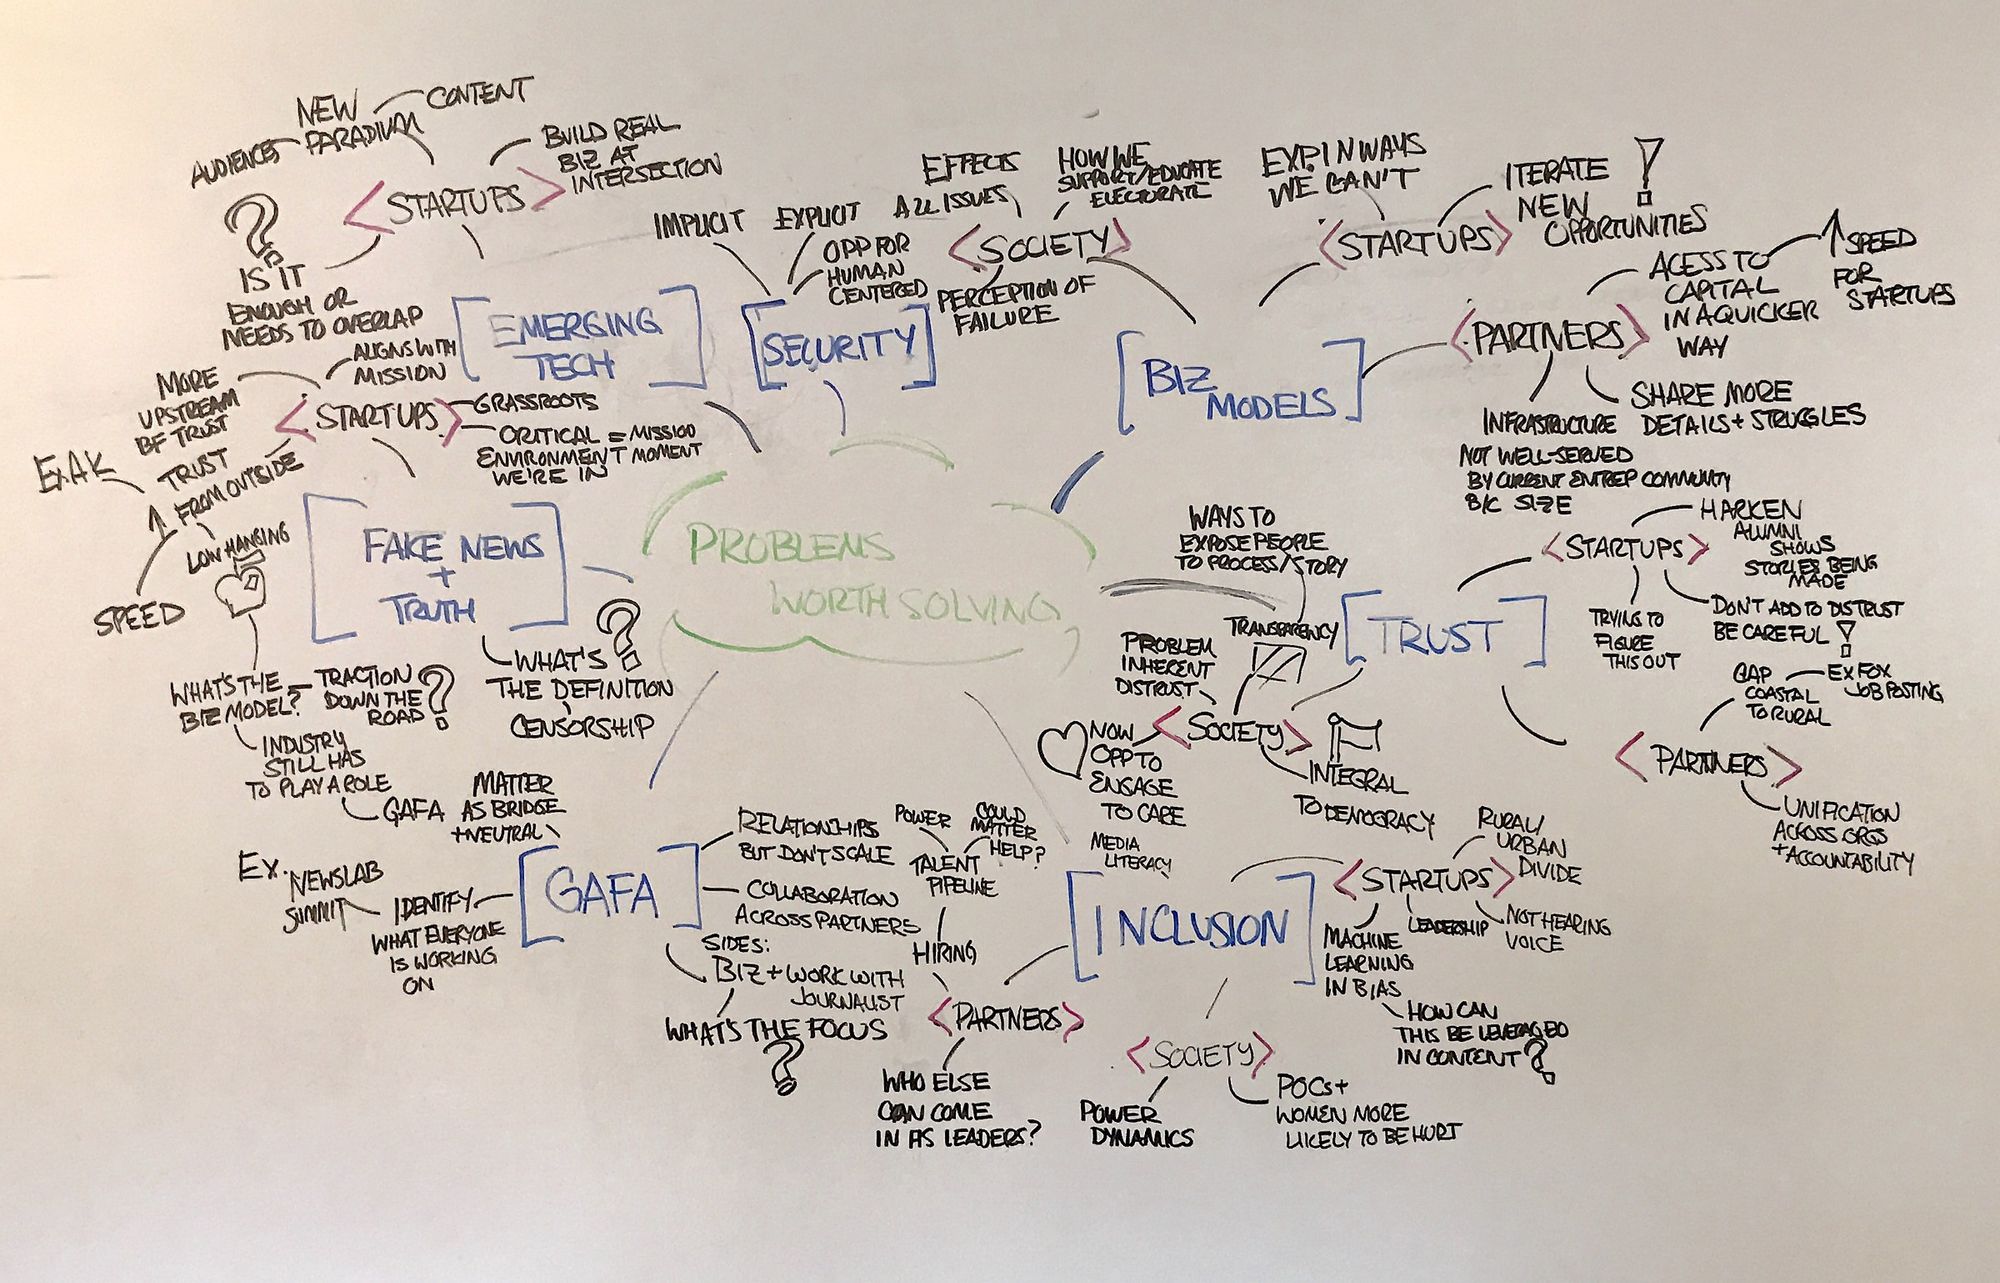 NEW
PARADIUM
CONTENT
AUDIENCES
BUILD REAL
BIZ AT
INTERSECTION
<STARTUPS>
?
IS IT
ENOUGH OR
NEEDS TO OVERLAP
[EMERGING
TECH]
IMPLICIT
EXPLICIT
OPP FOR
HUMAN
CENTERED
[SECURITY]
EFFECTS
ALL ISSUES
HOW WE
SUPPORT/EDUCATE
ELECTORATE
<SOCIETY>
PERCEPTION OF
FAILURE
EXP. IN WAYS
WE CAN'T
<STARTUPS>
ITERATE
NEW
OPPORTUNITIES
!
[BIZ
MODELS]
<PARTNERS>
ACESS TO
CAPITAL
IN A QUICKER
WAY
↑ SPEED
FOR
STARTUPS
SHARE MORE
DETAILS + STRUGGLES
INFRASTRUCTURE
NOT WELL-SERVED
BY CURRENT ENTREP COMMUNITY
B/C SIZE
ALIGNS WITH
MISSION
MORE
UPSTREAM
BF TRUST
<STARTUPS>
GRASSROOTS
CRITICAL = MISSION
ENVIRONMENT MOMENT
WE'RE IN
TRUST
FROM OUTSIDE
Ex. AK
↑
SPEED
LOW HANGING
WHAT'S THE
BIZ MODEL?
TRACTION
DOWN THE
ROAD
?
INDUSTRY
STILL HAS
TO PLAY A ROLE
GAFA
[FAKE NEWS
+
TRUTH]
WHAT'S
THE DEFINITION
?
CENSORSHIP
PROBLEMS
WORTH SOLVING
WAYS TO
EXPOSE PEOPLE
TO PROCESS/STORY
TRANSPARENCY
[TRUST]
<STARTUPS>
HARKEN
ALUMNI
SHOWS
STORIES BEING
MADE
DON'T ADD TO DISTRUST
BE CAREFUL !
TRYING TO
FIGURE
THIS OUT
PROBLEM
INHERENT
DISTRUST
<SOCIETY>
NOW
OPP TO
ENGAGE
TO CARE
INTEGRAL
TO DEMOCRACY
GAP
COASTAL
TO RURAL
EX FOX
JOB POSTING
<PARTNERS>
UNIFICATION
ACROSS ORGS
+ ACCOUNTABILITY
MATTER
AS BRIDGE
+ NEUTRAL
[GAFA]
Ex. NEWSLAB
SUMMIT
IDENTIFY
WHAT EVERYONE
IS WORKING
ON
RELATIONSHIPS
BUT DON'T SCALE
COLLABORATION
ACROSS PARTNERS
SIDES:
BIZ + WORK WITH
JOURNALIST
WHAT'S THE FOCUS
?
POWER
COULD
MATTER
HELP?
TALENT
PIPELINE
HIRING
<PARTNERS>
WHO ELSE
CAN COME
IN AS LEADERS?
MEDIA
LITERACY
[INCLUSION]
<STARTUPS>
RURAL/
URBAN
DIVIDE
LEADERSHIP
NOT HEARING
VOICE
MACHINE
LEARNING
IN BIAS
HOW CAN
THIS BE LEVERAGED
IN CONTENT ?
<SOCIETY>
POWER
DYNAMICS
POCs +
WOMEN MORE
LIKELY TO BE HURT